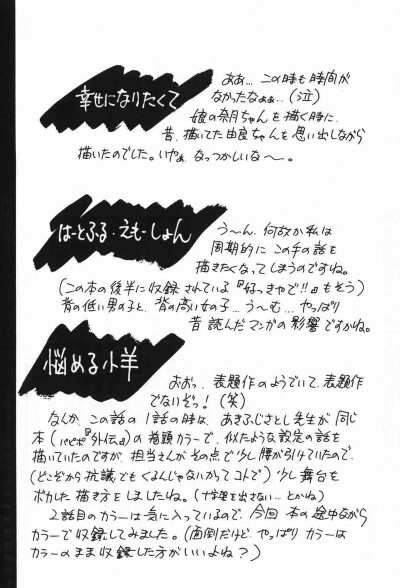 幸せになりたくて
ああ…この時も時間が
なかったなぁぁ…(泣)
娘の奈月ちゃんを描く時に、
昔、描いてた由良ちゃんを思い出しながら
描いたのでした。いやぁ、なっつかしいな〜。
はーとふる・えもーしょん
う〜ん、何故か私は
周期的にこの手の話を
描きたくなってしまうのですね。
(この本の後半に収録されている『好っきゃで!!』もそう)
背の低い男の子と、背の高い女の子…う〜む…やっぱり
昔読んだマンガの影響ですかね。
悩める小羊
おおっ、表題作のようでいて、表題作
でないぞっ!(笑)
なんか、この話の1話の時は、あきふじさとし先生が同じ
本(『外伝』)の指頭カラーで、似たような設定の話を
描いていたのですが、担当さんがその点で少し腰が引けていたので、
(どこぞから抗議でもくるんじゃないかってコトで)少し舞台を
ボカした描き方をしましたね。(十字架を出さない…とかね)
2話目のカラーは気に入っているので、今回、本の途中ながら
カラーで収録してみました。(面倒だけど、やっぱりカラーは
カラーのまま収録した方がいいよね?)